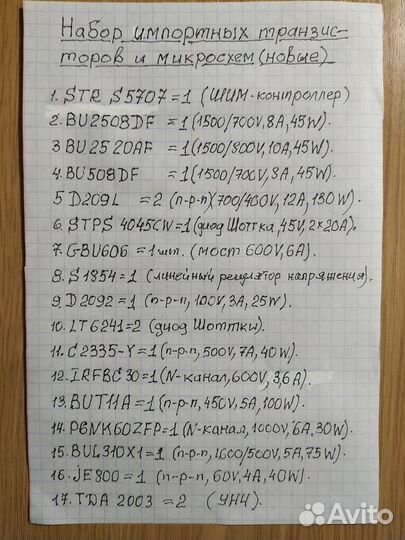 Набор импортных транзис-
торов и микросхем (новые)
1. STR S5707 = 1 (ШИМ-контроллер)
2. BU2508DF = 1 (1500/700V, 8A, 45W).
3 BU2520AF = 1 (1500/800V, 10A, 45W).
4. BU508DF = 1 (1500/700V, 8A, 45W).
5 D209L = 2 (п-р-п)(700/400V, 12A, 130W).
6. STPS 4045CW = 1 (диод Шоттка, 45V, 2×20A).
7. GBU606 = 1 шт. (мост 600V, 6A).
8. S1854 = 1 (линейный регулятор напряжения).
9. D2092 = 1 (п-р-п, 100V, 3A, 25W).
10. LT6241 = 2 (диод Шоттки).
11. C2335-Y = 1 (п-р-п, 500V, 7A, 40W).
12. IRFBC30 = 1 (N-канал, 600V, 3,6A).
13. BUT11A = 1 (п-р-п, 450V, 5A, 100W).
14. P6NK60ZFP = 1 (N-канал, 1000V, 6A, 30W).
15. BUL310X1 = 1 (п-р-п, 1000/500V, 5A, 75W).
16. JE800 = 1 (п-р-п, 60V, 4A, 40W)
17. TDA 2003 = 2 (УНЧ).
Avito